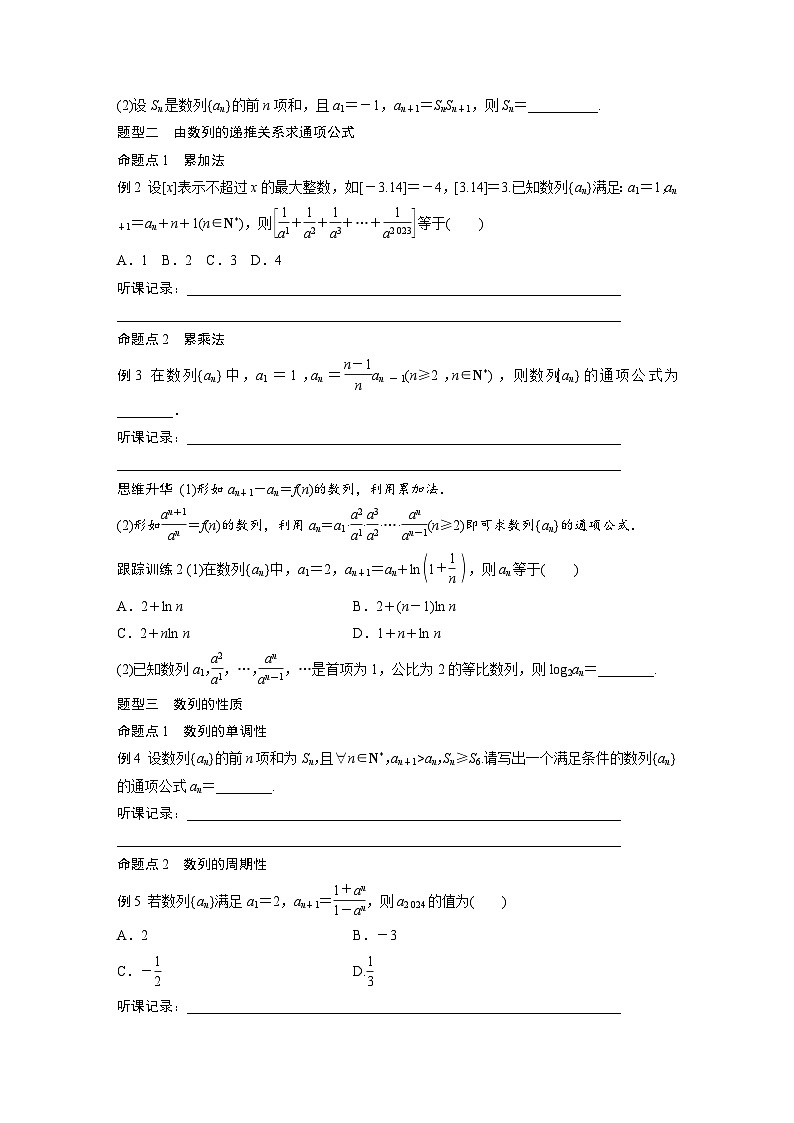 (2)设 Sn 是数列{an}的前 n 项和，且 a1＝－1，an＋1＝SnSn＋1，则 Sn＝__________.
题型二　由数列的递推关系求通项公式
命题点 1　累加法
例 2 设[x]表示不超过 x 的最大整数，如[－3.14]＝－4，[3.14]＝3.已知数列{an}满足：a1＝1,an
＋1＝an＋n＋1(n∈N*)，则[1/a1＋1/a2＋1/a3＋…＋1/a2 023]等于(　　)
A．1　B．2　C．3　D．4
听课记录：______________________________________________________________
________________________________________________________________________
命题点 2　累乘法
例 3 在数列{an}中，a1＝1,an＝(n－1)/n an－1(n≥2,n∈N*)，则数列{an}的通项公式为
________．
听课记录：______________________________________________________________
________________________________________________________________________
思维升华 (1)形如 an＋1－an＝f(n)的数列，利用累加法．
(2)形如an＋1/an＝f(n)的数列，利用 an＝a1·a2/a1·a3/a2·…·an/an－1(n≥2)即可求数列{an}的通项公式．
跟踪训练 2 (1)在数列{an}中，a1＝2，an＋1＝an＋ln(1＋1/n)，则 an 等于(　　)
A．2＋ln n　B．2＋(n－1)ln n
C．2＋nln n　D．1＋n＋ln n
(2)已知数列 a1,a2/a1，…,an/an－1，…是首项为 1，公比为 2 的等比数列，则 log2an＝________.
题型三　数列的性质
命题点 1　数列的单调性
例 4 设数列{an}的前 n 项和为 Sn,且∀n∈N*,an＋1>an,Sn≥S6.请写出一个满足条件的数列{an}
的通项公式 an＝________.
听课记录：______________________________________________________________
________________________________________________________________________
命题点 2　数列的周期性
例 5 若数列{an}满足 a1＝2，an＋1＝1＋an/1－an，则 a2 024 的值为(　　)
A．2　B．－3
C．－1/2　D.1/3
听课记录：______________________________________________________________